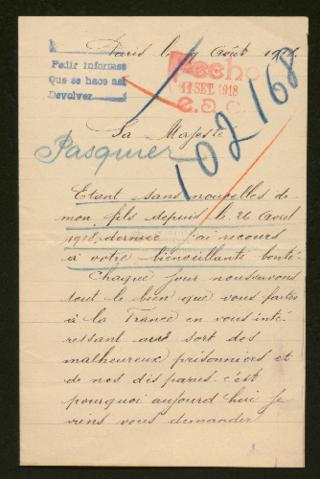 Paris le 9 Août 1918
Pedir informes
Que se hace así
Devolver
Hecho
11 SET. 1918
e.a.c.
102168
Sa Majesté
Pasquier
Etant sans nouvelles de
mon fils depuis le 26 Août
dernier j'ai recours
a votre bienveillante bonté.
Chaque jour nous savons
tout le bien que vous faites
à la France en vous inté-
ressant aux sort des
malheureux prisonniers et
de nos disparus. c'est
pourquoi aujourd'hui je
viens vous demander